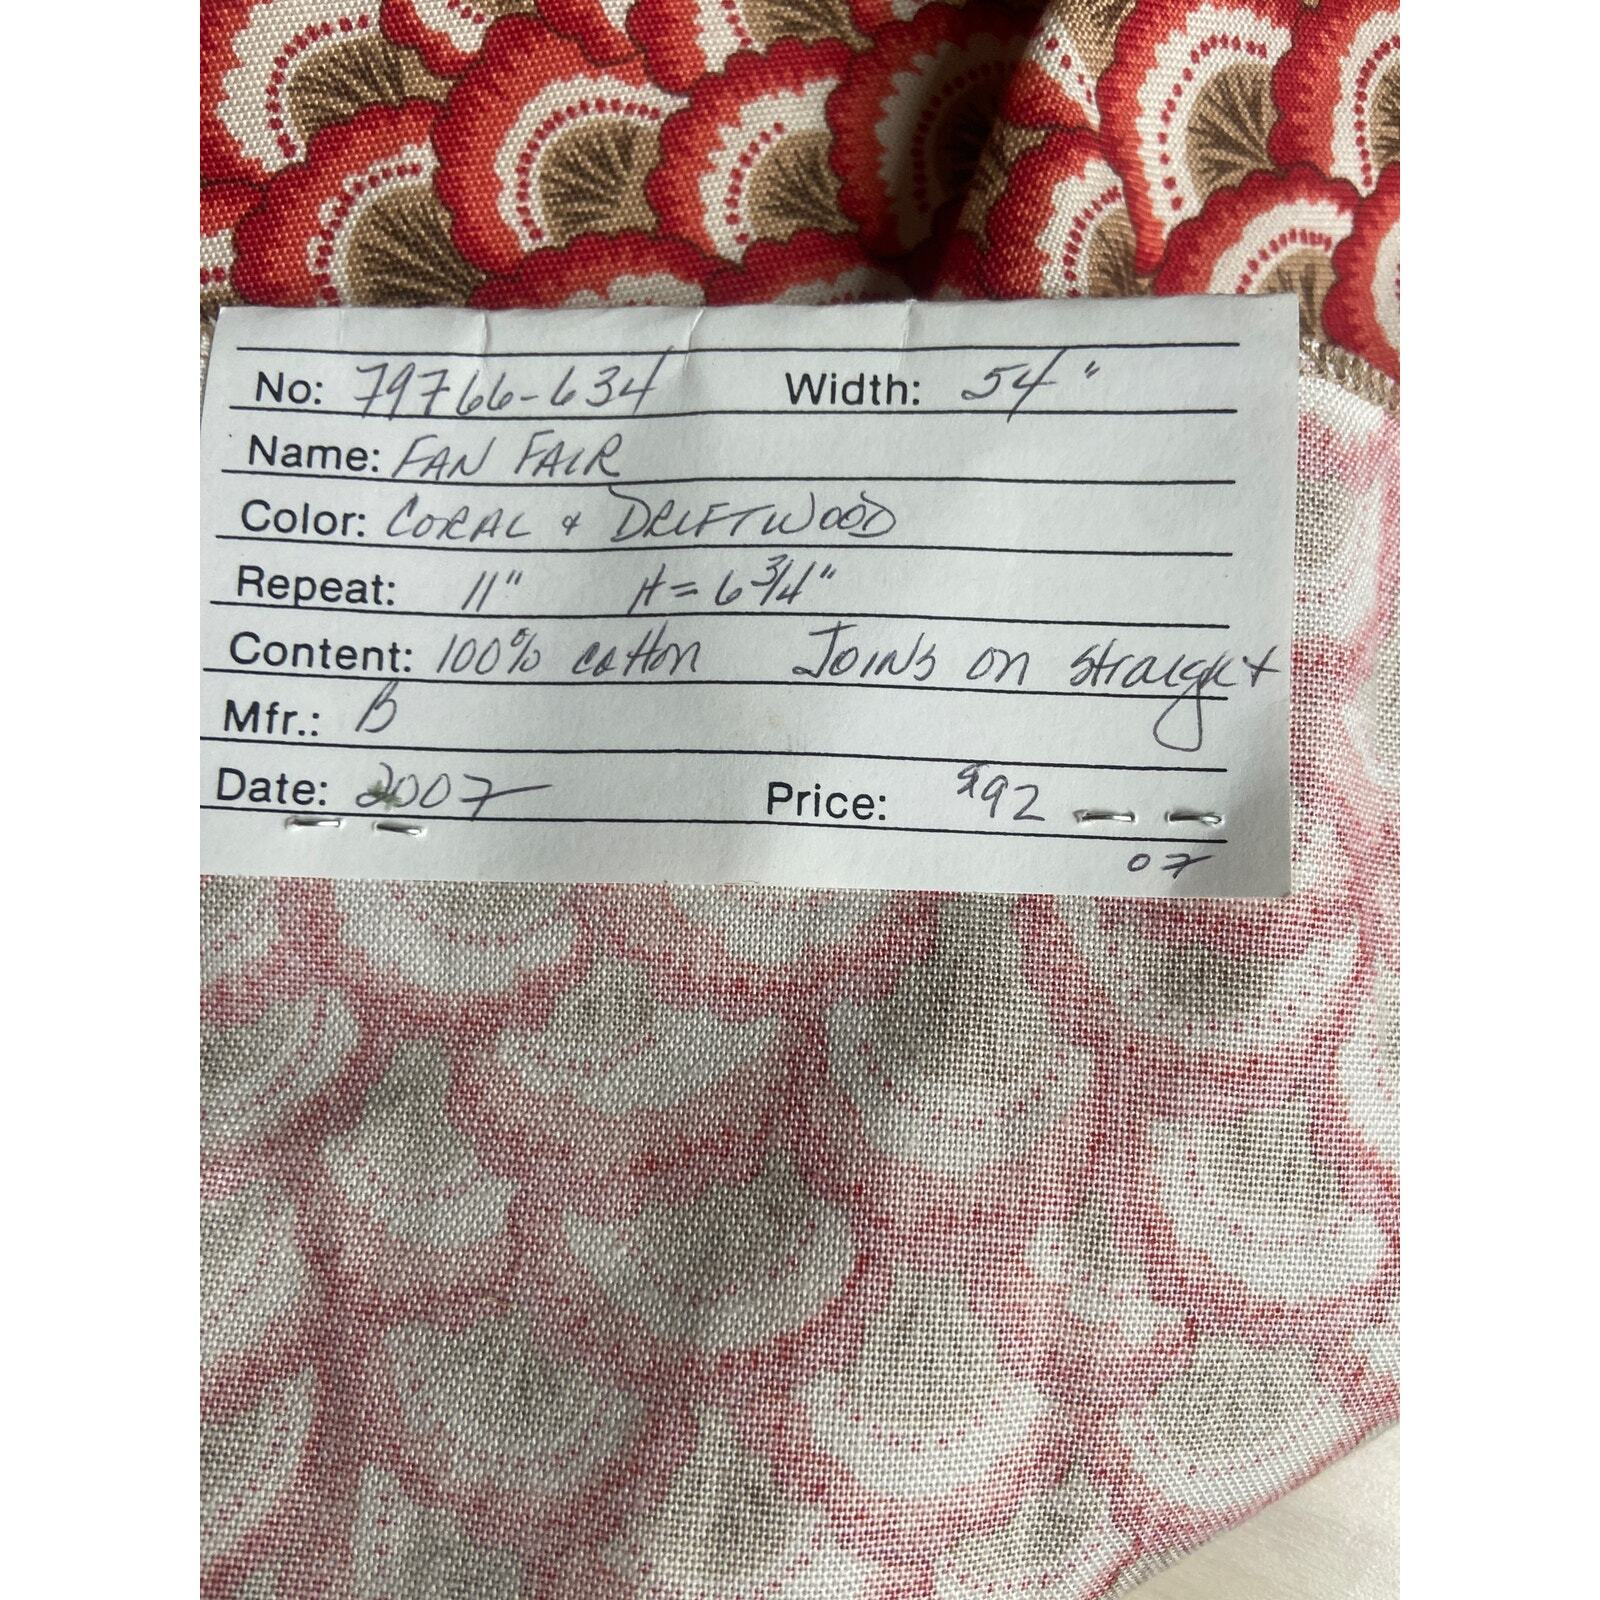 No: 79766-634 Width: 54"
Name: FAN FAIR
Color: CORAL & DRIFTWOOD
Repeat: 11" H = 6 3/4"
Content: 100% cotton JOINS on straight
Mfr.: B
Date: 2007 Price: $92
07